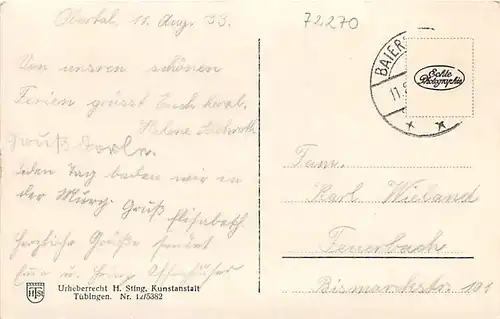 Obertal, 11. Aug. 33.
72270
Von unsren schönen
Ferien grüsst Euch
Helene
Gruß
Jeden Tag baden wir in
der Murg. Gruß Elisabeth.
Herzliche Grüße sendet
u.
BAIERS
11.8
Echte
Photographie
Fam.
Karl Wieland
Feuerbach
Bismarckstr. 101
HTS
Urheberrecht H. Sting, Kunstanstalt
Tübingen. Nr. 127/5382